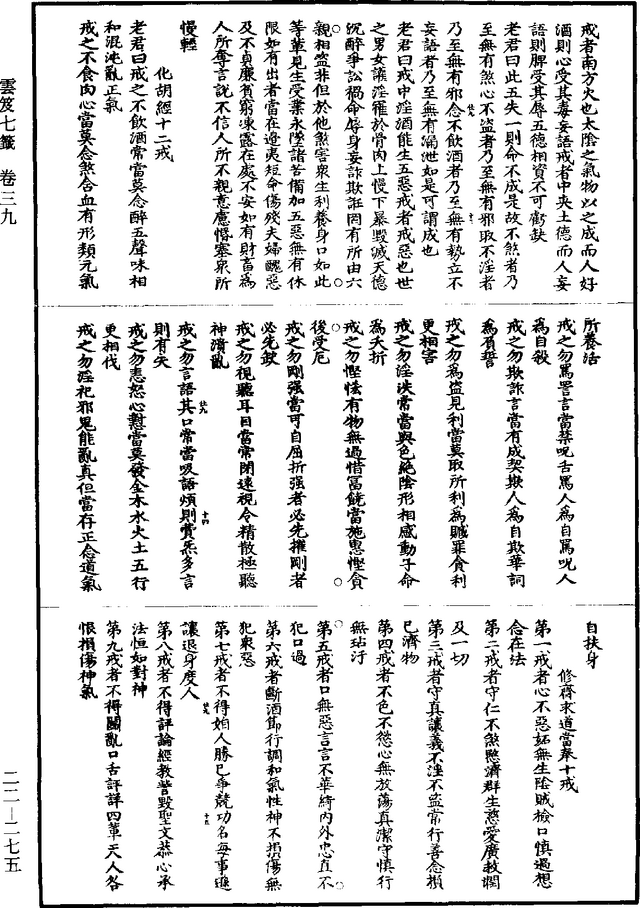 戒者南方火也太陰之氣物以之成而人好
酒則心受其毒妄語戒者中央土德而人妄
語則脾受其辱五德相資不可虧缺
老君曰此五失一則命不成是故不煞者乃
至無有煞心不盜者乃至無有邪取不淫者
乃至無有邪念不飲酒者乃至無有勢立不
妄語者乃至無有漏泄如是可謂成也
老君曰戒中淫酒能生五惡戒者戒惡也世
之男女讓淫罹於骨肉上慢下暴毀滅天德
沉醉爭訟禍命辱身妄詐欺誑罔有所由六
親相盜非但於他煞害衆生利養身口如此
等輩見生受業永墜諸苦備加五惡無有休
限如有出者當在邊夷短命傷殘夫婦醜惡
及不貞廉貧窮凍露在處不安如有財畜為
人所奪言說不信人所不親意慮惛塞衆所
慢輕
化胡經十二戒
老君曰戒之不飲酒常當莫念醉五聲味相
和混沌亂正氣
戒之不食肉心當莫念煞含血有形類元氣
所養活
戒之勿罵詈言當禁呪舌罵人為自罵呪人
為自殺
戒之勿欺詐言當有成契欺人為自欺華詞
為負誓
戒之勿為盜見利當莫取所利為贓罪貪利
更相害
戒之勿淫泆常當與色絕陰形相感動子命
為夭折
戒之勿慳怯有物無過惜富饒當施惠慳貪
後受厄
戒之勿剛強當可自屈折強者必先摧剛者
必先缺
戒之勿視聽耳目當常閉遠視令精散極聽
神潰亂
戒之勿言語其口常當吸語煩則費炁多言
則有失
戒之勿恚怒心懟當莫發金木水火土五行
更相伐
戒之勿淫祀邪鬼能亂真但當存正念道氣
自扶身
修齋求道當奉十戒
第一戒者心不惡妬無生陰賊檢口慎過想
念在法
第二戒者守仁不煞愍濟群生慈愛廣救潤
及一切
第三戒者守真讓義不淫不盜常行善念損
己濟物
第四戒者不色不慾心無放蕩真潔守慎行
無玷汙
第五戒者口無惡言言不華綺內外忠直不
犯口過
第六戒者斷酒節行調和氣性神不損傷無
犯衆惡
第七戒者不得妬人勝己爭競功名每事遜
讓退身度人
第八戒者不得評論經教訾毀聖文恭心承
法恒如對神
第九戒者不得鬭亂口舌評詳四輩天人咎
恨損傷神氣
雲笈七籤 卷三九
二二—二七五